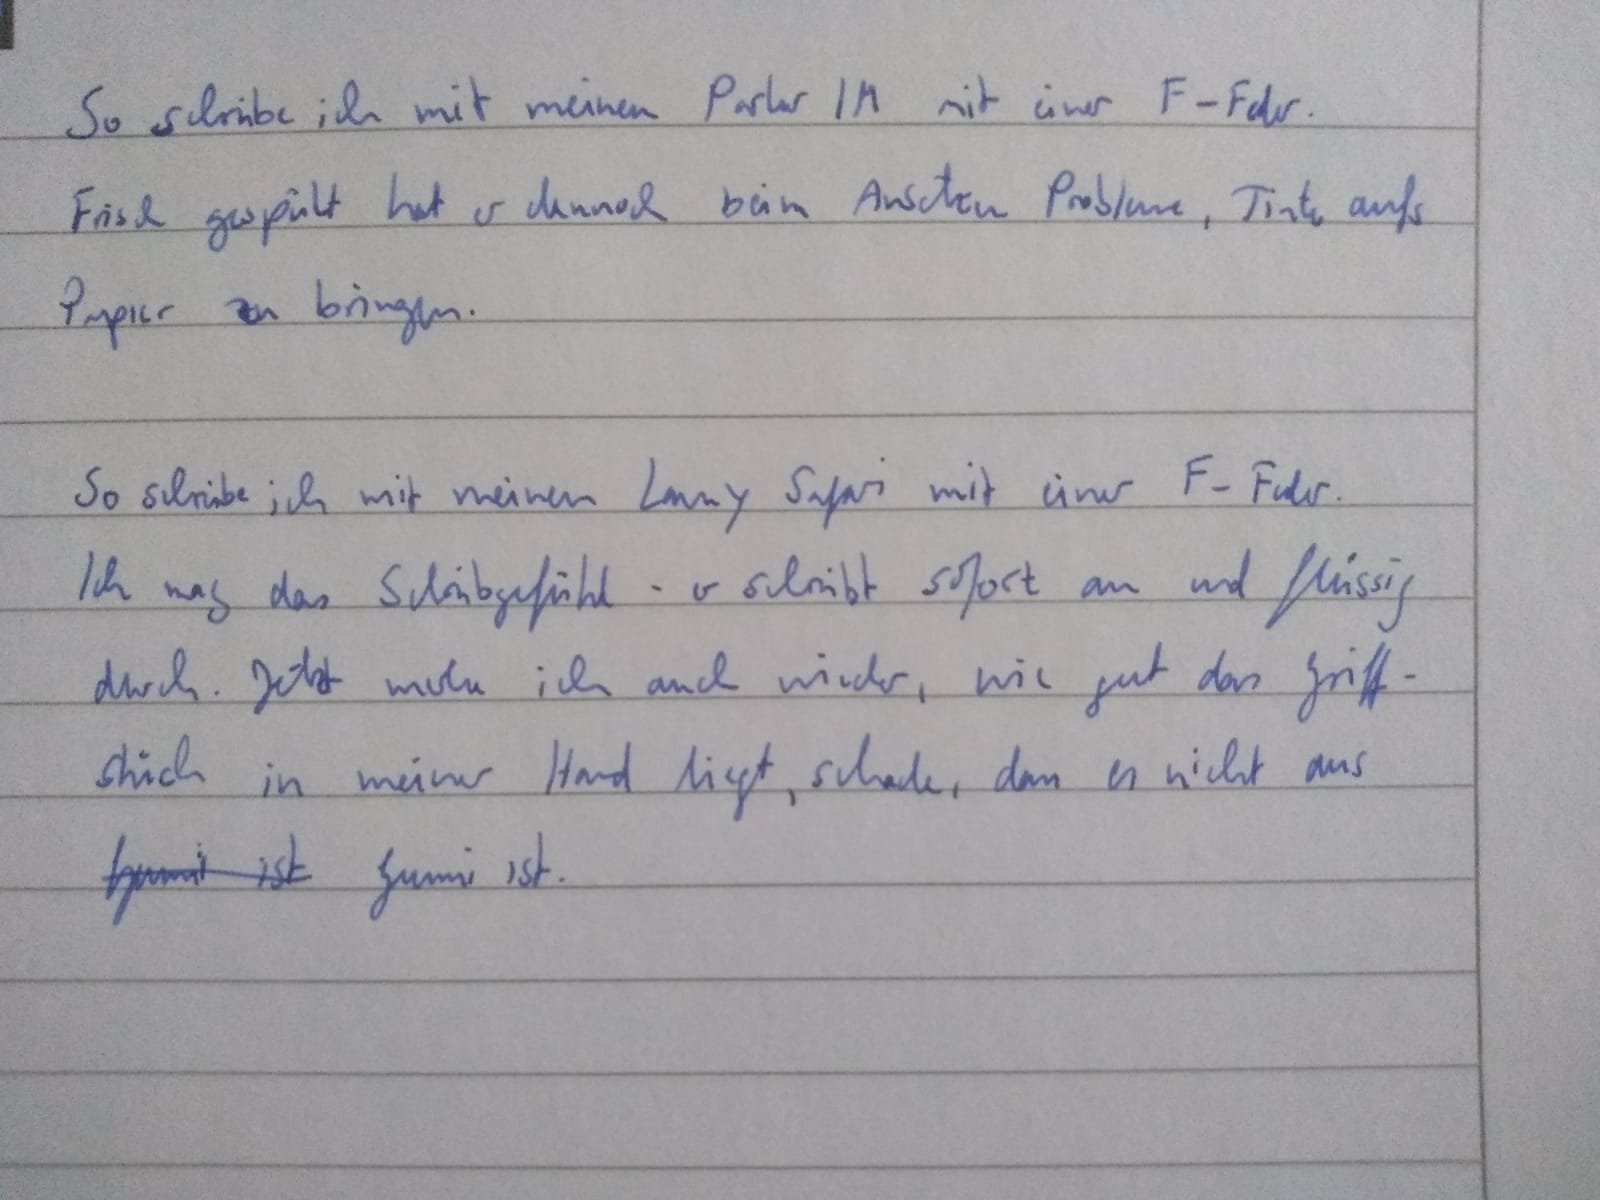 So schreibe ich mit meinem Parker IM mit einer F-Feder.
Frisch gespült hat er dennoch beim Ansetzen Probleme, Tinte aufs
Papier zu bringen.
So schreibe ich mit meinem Lamy Safari mit einer F-Feder.
Ich mag das Schreibgefühl - er schreibt sofort an und flüssig
durch. Jetzt merke ich auch wieder, wie gut das Griff-
stück in meiner Hand liegt, schade, dass es nicht aus
Gummi ist.